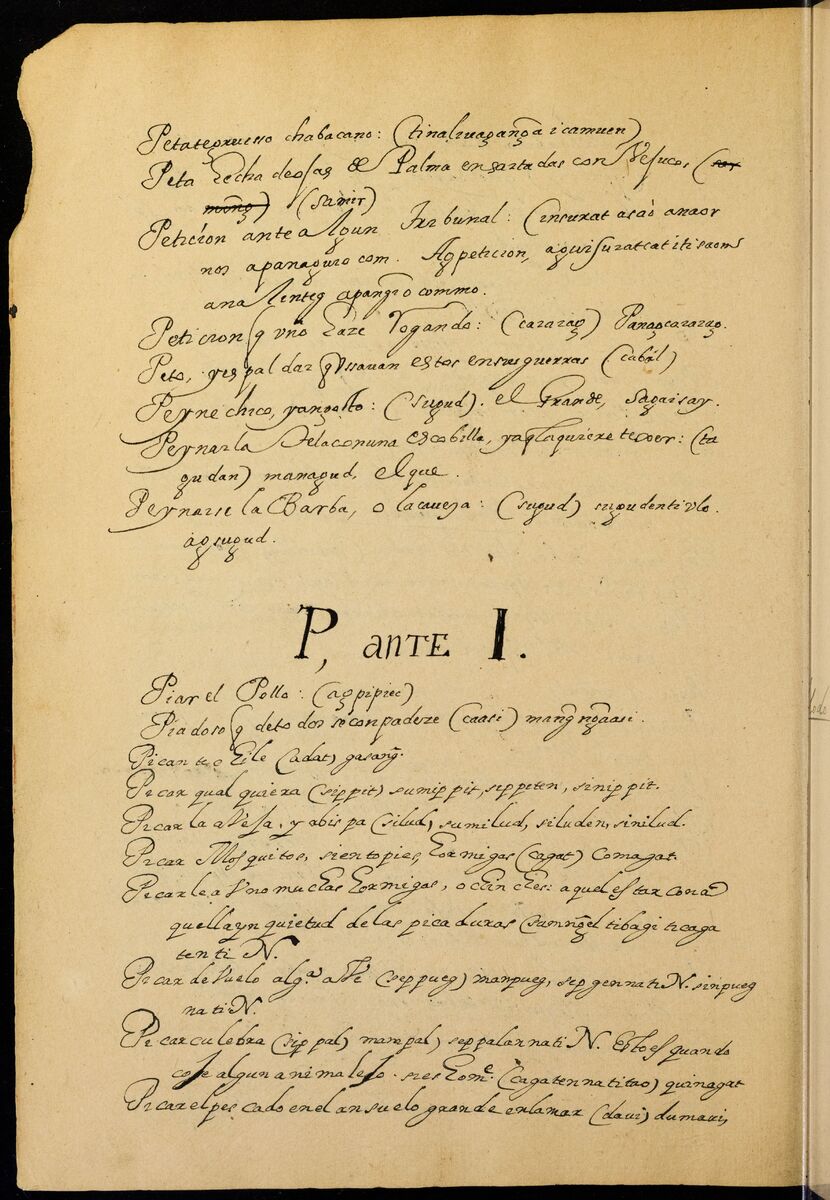 Petate grueso chabacano: (tinalruagang̃a icamuen)
Peta hecha de ojas de Palma ensartadas con Vejucos, (
(samir)
Peticion ante algun Tribunal: (insurat a sáò anaor
nos apanaguro com. Ag peticion, aguisuratcat itisaom̃
ana Linteg apang̃o commo.
Peticion q̃ vno haze Rogando: (cararag) Panagcararag.
Peto, y espaldar q̃ Vssauan estos en sus guerras (cabil)
Peyne chico, y angosto: (sugud). el Grande, Sagaisay.
Peynar la Tela con una escobilla, ya q̃ la quiere texer: (ta
gudan) managud, el que.
Peynarse la Barba, o la caueza: (sugud) sugudenti vlo.
agsugud.
P, ANTE I.
Piar el Pollo: (agpipiec)
Piadoso q̃ de todos se conpadeze (caasi) mang̃ng̃aasi.
Picante chile (adat) gasang̃.
Picar qual quiera (sippit) sumippit, seppeten, sinippit.
Picar la aVeja, y abispa (silud) sumilud, siluden, sinilud.
Picar Mosquitos, sientopies, hormigas (cagat) comagat.
Picarle a Vno muchas hormigas, o chinches: a quel estar con a
quella ynquietud de las picaduras (samng̃el tibagi ticaga
tenti N.
Picar de Vuelo alg.ª aVe (seppueg) manpueg, sepgennati N. sinpueg
nati N.
Picar culebra (sippal) mampal) seppalannati N. Esto es quando
coje algun animalejo. si es hom.e: (cagatennatitao) quinagat
Picar el pescado en el ansuelo grande en la mar (daui) dumaui,